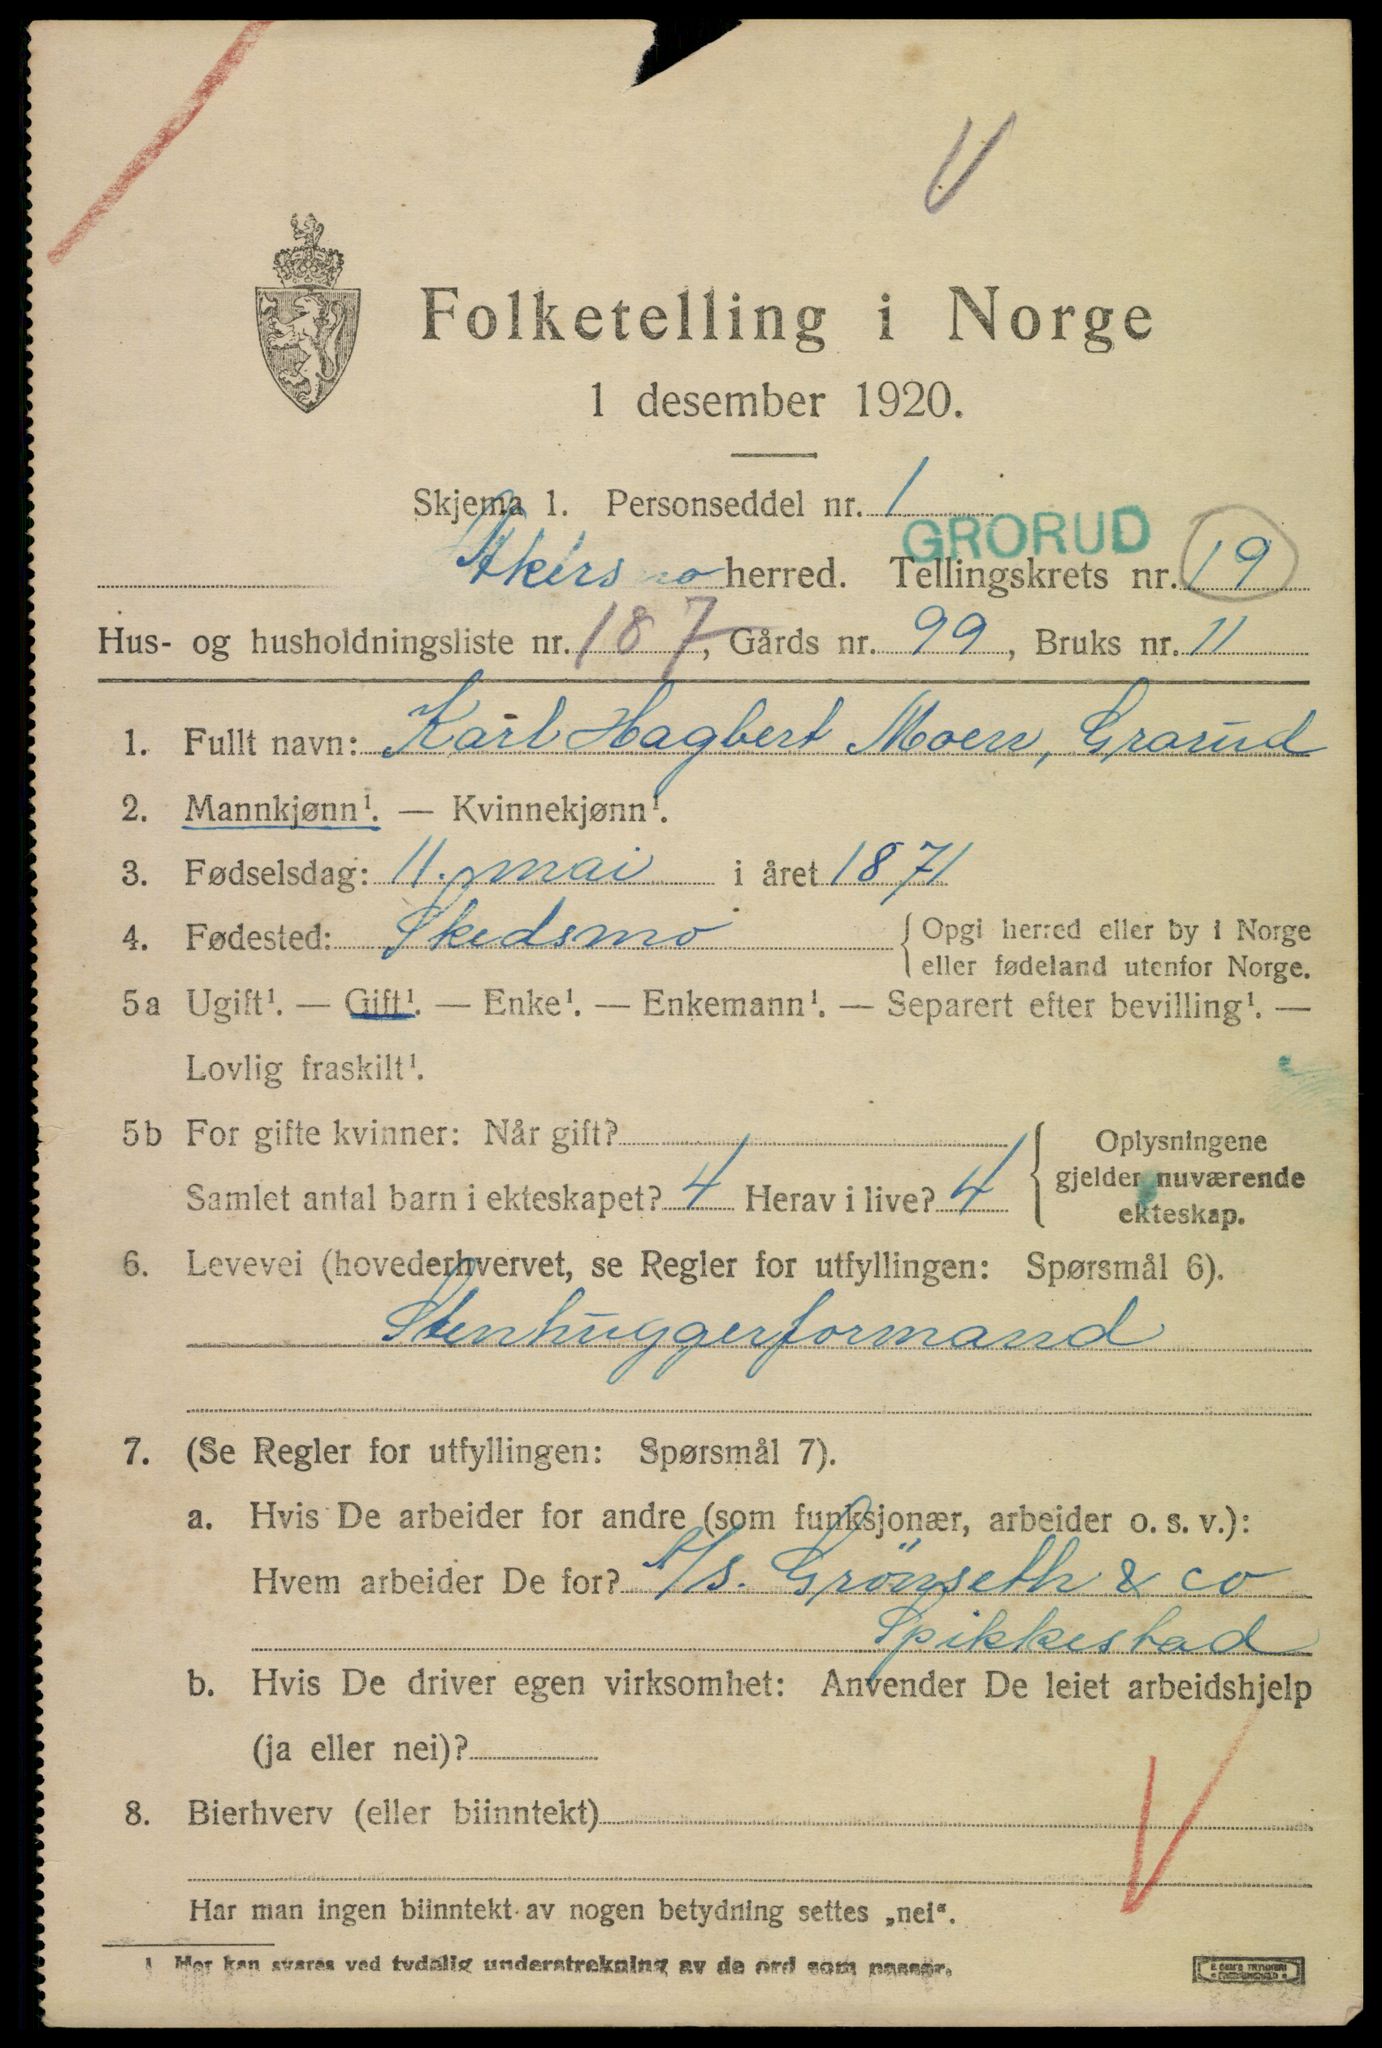 Folketelling i Norge
1 desember 1920.
Skjema 1. Personseddel nr. 1
GRORUD
Akers herred. Tellingskrets nr. 19
Hus- og husholdningsliste nr. 187, Gårds nr. 99, Bruks nr. 11
1. Fullt navn: Karl Hagbert Moen, Grorud
2. Mannkjønn¹. — Kvinnekjønn¹.
3. Fødselsdag: 11. mai i året 1871
4. Fødested: Skedsmo { Opgi herred eller by i Norge
eller fødeland utenfor Norge.
5a Ugift¹. — Gift¹. — Enke¹. — Enkemann¹. — Separert efter bevilling¹. —
Lovlig fraskilt¹.
5b For gifte kvinner: Når gift?
Samlet antal barn i ekteskapet? 4 Herav i live? 4
{ Oplysningene
gjelder nuværende
ekteskap.
6. Levevei (hovederhvervet, se Regler for utfyllingen: Spørsmål 6).
Stenhuggerformand
7. (Se Regler for utfyllingen: Spørsmål 7).
a. Hvis De arbeider for andre (som funksjonær, arbeider o. s. v.):
Hvem arbeider De for? A/s. Grönseth & co
Spikkestad
b. Hvis De driver egen virksomhet: Anvender De leiet arbeidshjelp
(ja eller nei)?
8. Bierhverv (eller biinntekt)
Har man ingen biinntekt av nogen betydning settes „nei“.
1 Her kan svares ved tydelig understrekning av de ord som passer.